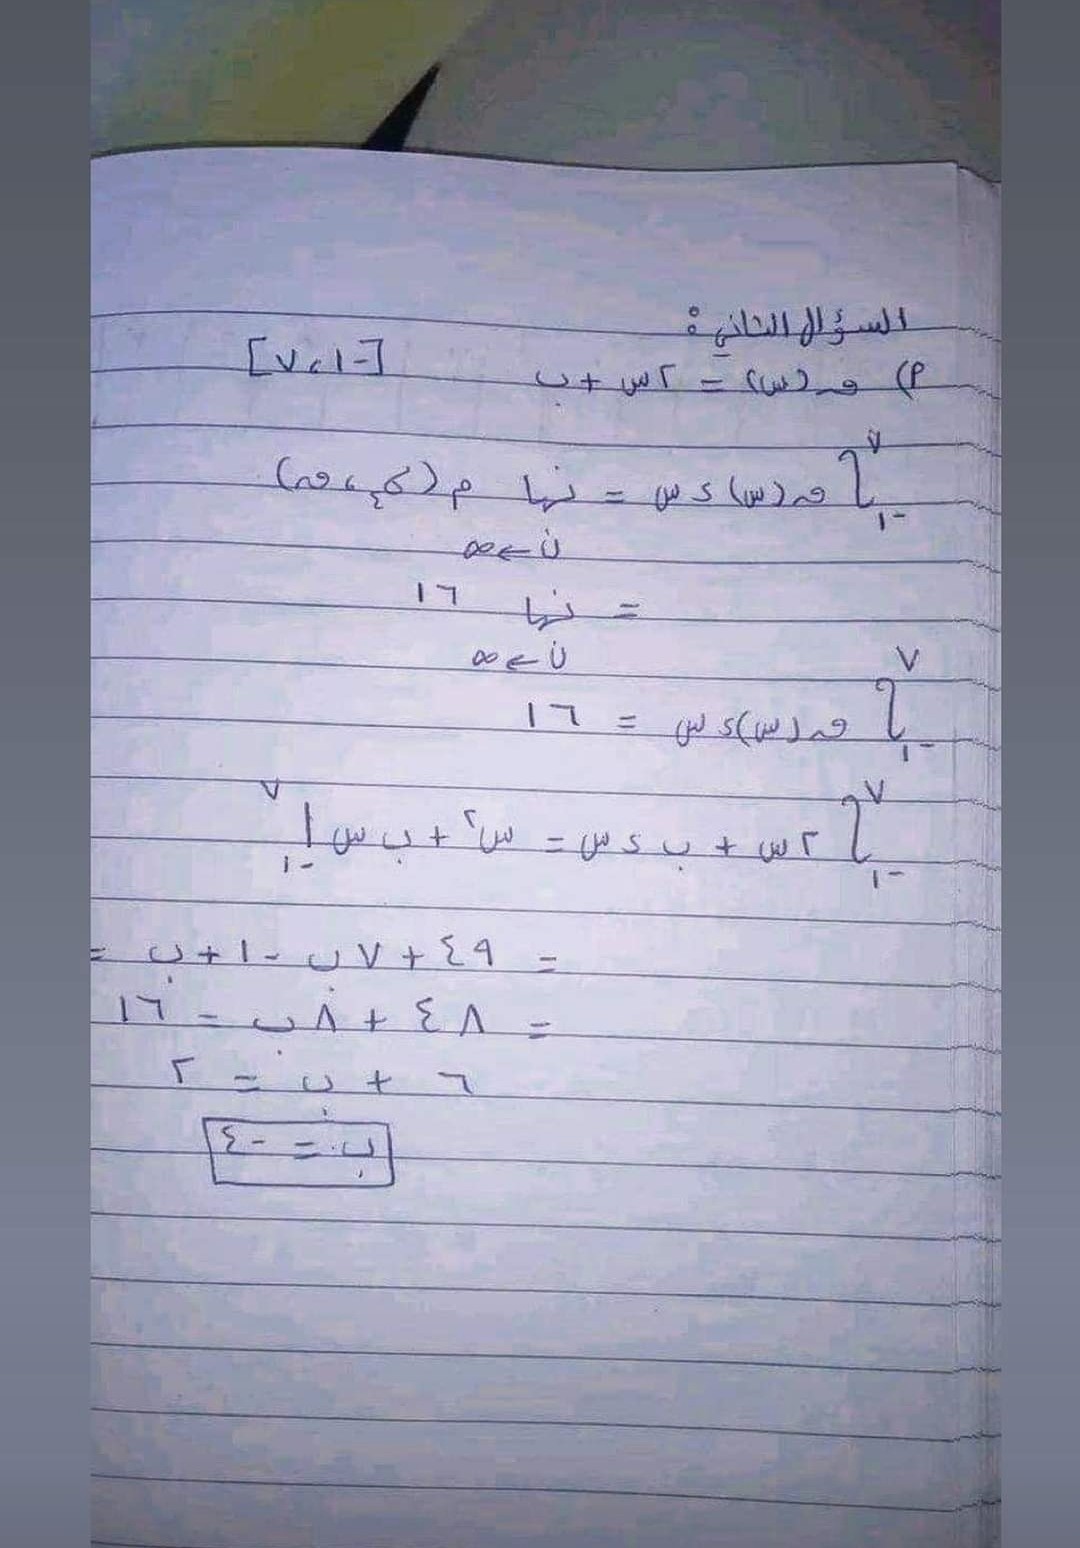 السؤال الثاني:
٢) ق(س) = ٢س + ب [-١ ، ٧]
∫ ٧ -١ ق(س) ء س = نها م (σن ، ق)
ن → ∞
= نها ١٦
ن → ∞
∫ ٧ -١ ق(س) ء س = ١٦
∫ ٧ -١ ٢س + ب ء س = س٢ + ب س | ٧ -١
= ٤٩ + ٧ب - ١ + ب =
= ٤٨ + ٨ب = ١٦
٦ + ب = ٢
ب = -٤